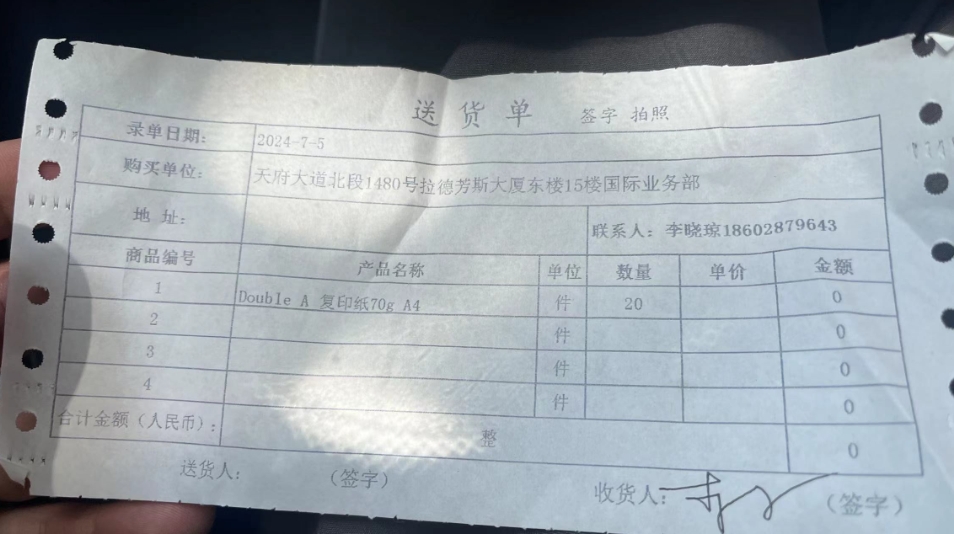 送货单 签字 拍照
录单日期: 2024-7-5
购买单位: 天府大道北段1480号拉德芳斯大厦东楼15楼国际业务部
地 址: 联系人: 李晓琼18602879643
商品编号 产品名称 单位 数量 单价 金额
1 Double A 复印纸70g A4 件 20 0
2 件 0
3 件 0
4 件 0
合计金额（人民币）: 整 0
送货人: （签字） 收货人: （签字）